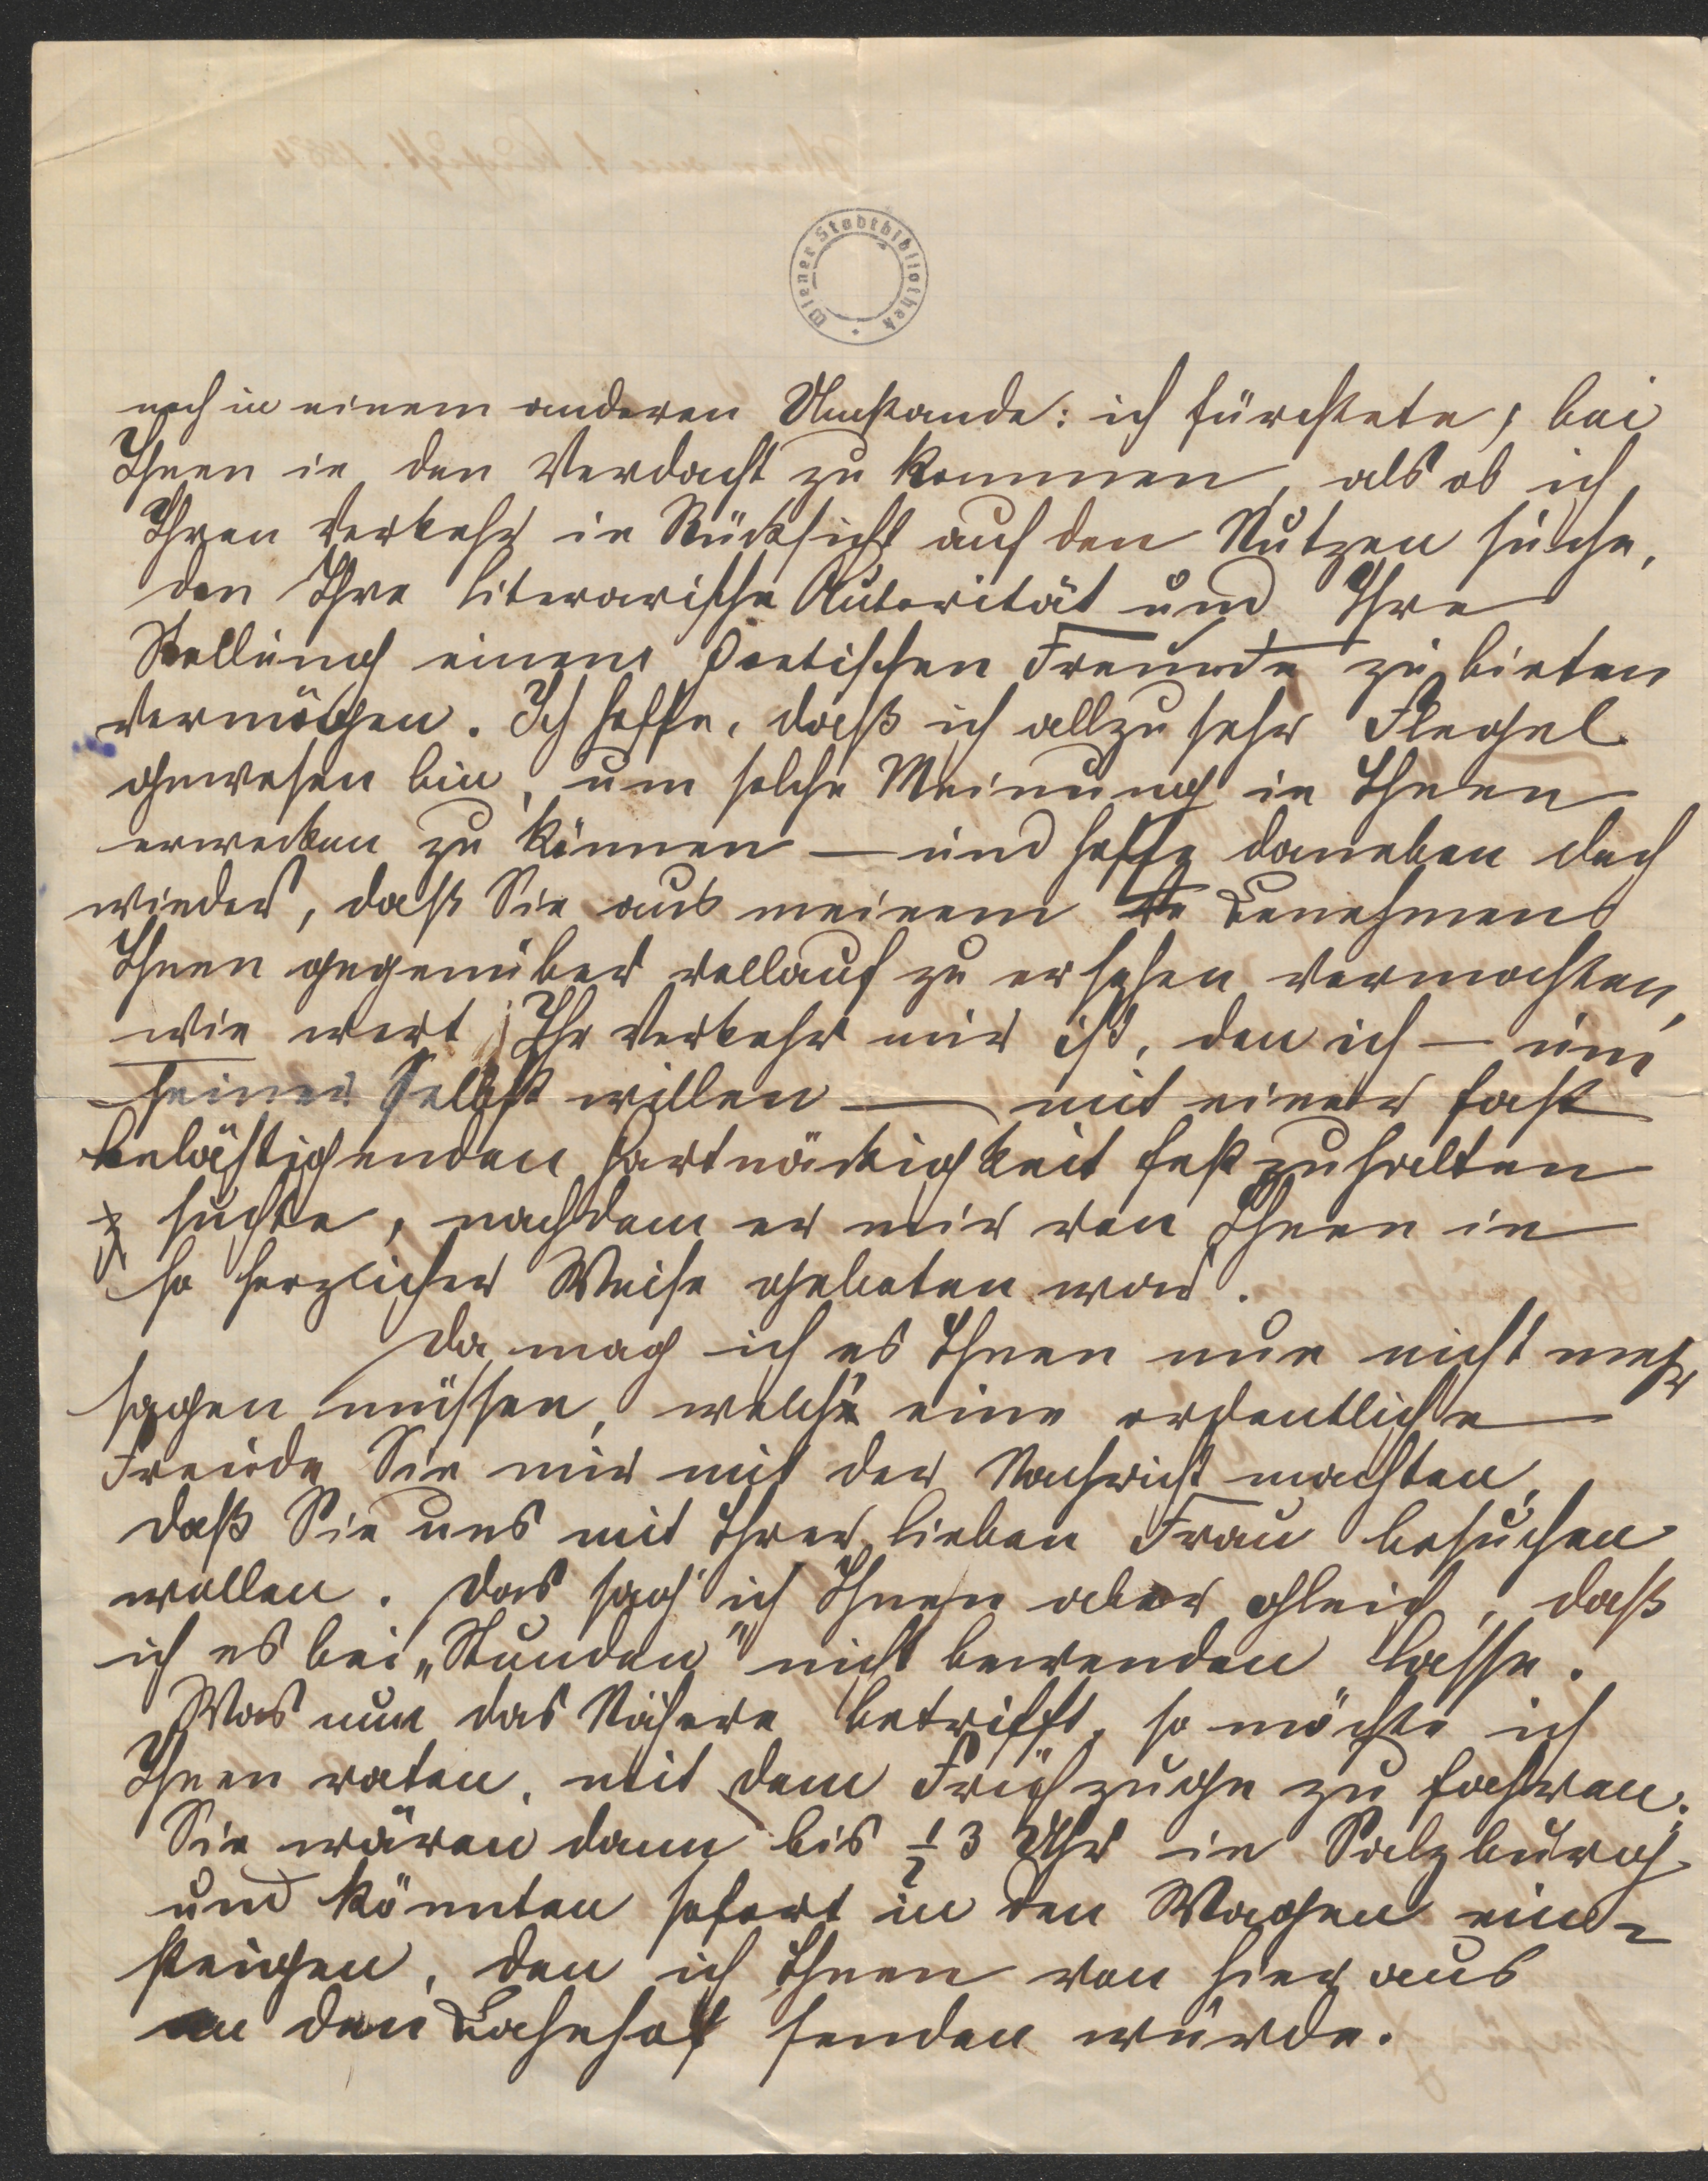 Wiener Stadtbibliothek
noch in einem anderen Umstande: ich fürchtete, bei
Ihnen in den Verdacht zu kommen, als ob ich
Ihren Verkehr in Rücksicht auf den Nutzen suche,
den Ihre literarische Autorität und Ihre
Stellung einem poetischen Freunde zu bieten
vermögen. Ich hoffe, daß ich allzu sehr Flegel
gewesen bin, um solche Meinung in Ihnen
erwecken zu können — und hoffe daneben doch
wieder, daß Sie aus meinem Benehmen
Ihnen gegenüber vollauf zu ersehen vermochten,
wie wert Ihr Verkehr mir ist, den ich — um
seiner selbst willen — mit einer fast
belästigenden Hartnäckigkeit festzuhalten
suchte, nachdem er mir von Ihnen in
so herzlicher Weise geboten ward.
Da mag ich es Ihnen nun nicht mehr
sagen müssen, welch eine ordentliche
Freude Sie mir mit der Nachricht machten,
daß Sie uns mit Ihrer lieben Frau besuchen
wollen. Das sag' ich Ihnen aber gleich, daß
ich es bei „Stunden" nicht bewenden lasse.
Was nun das Nähere betrifft, so möchte ich
Ihnen raten, mit dem Frühzuge zu fahren.
Sie wären dann bis ½ 3 Uhr in Salzburg
und könnten sofort in den Wagen ein-
steigen, den ich Ihnen von hier aus
an den Bahnhof senden würde.